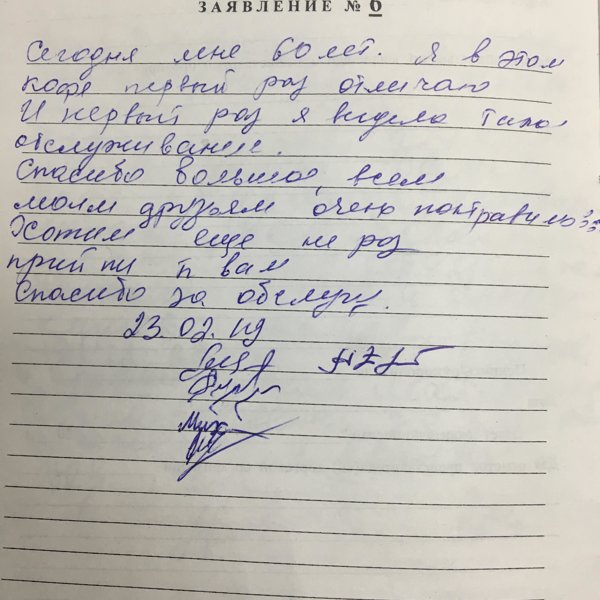 ЗАЯВЛЕНИЕ № 6
Сегодня мне 60 лет. Я в этом
кафе первый раз отмечаю
И первый раз я видела такое
обслуживание.
Спасибо большое, всем
моим друзьям очень понравилось
Хотим еще не раз
прийти к вам
Спасибо за обслуж.
23.02.19